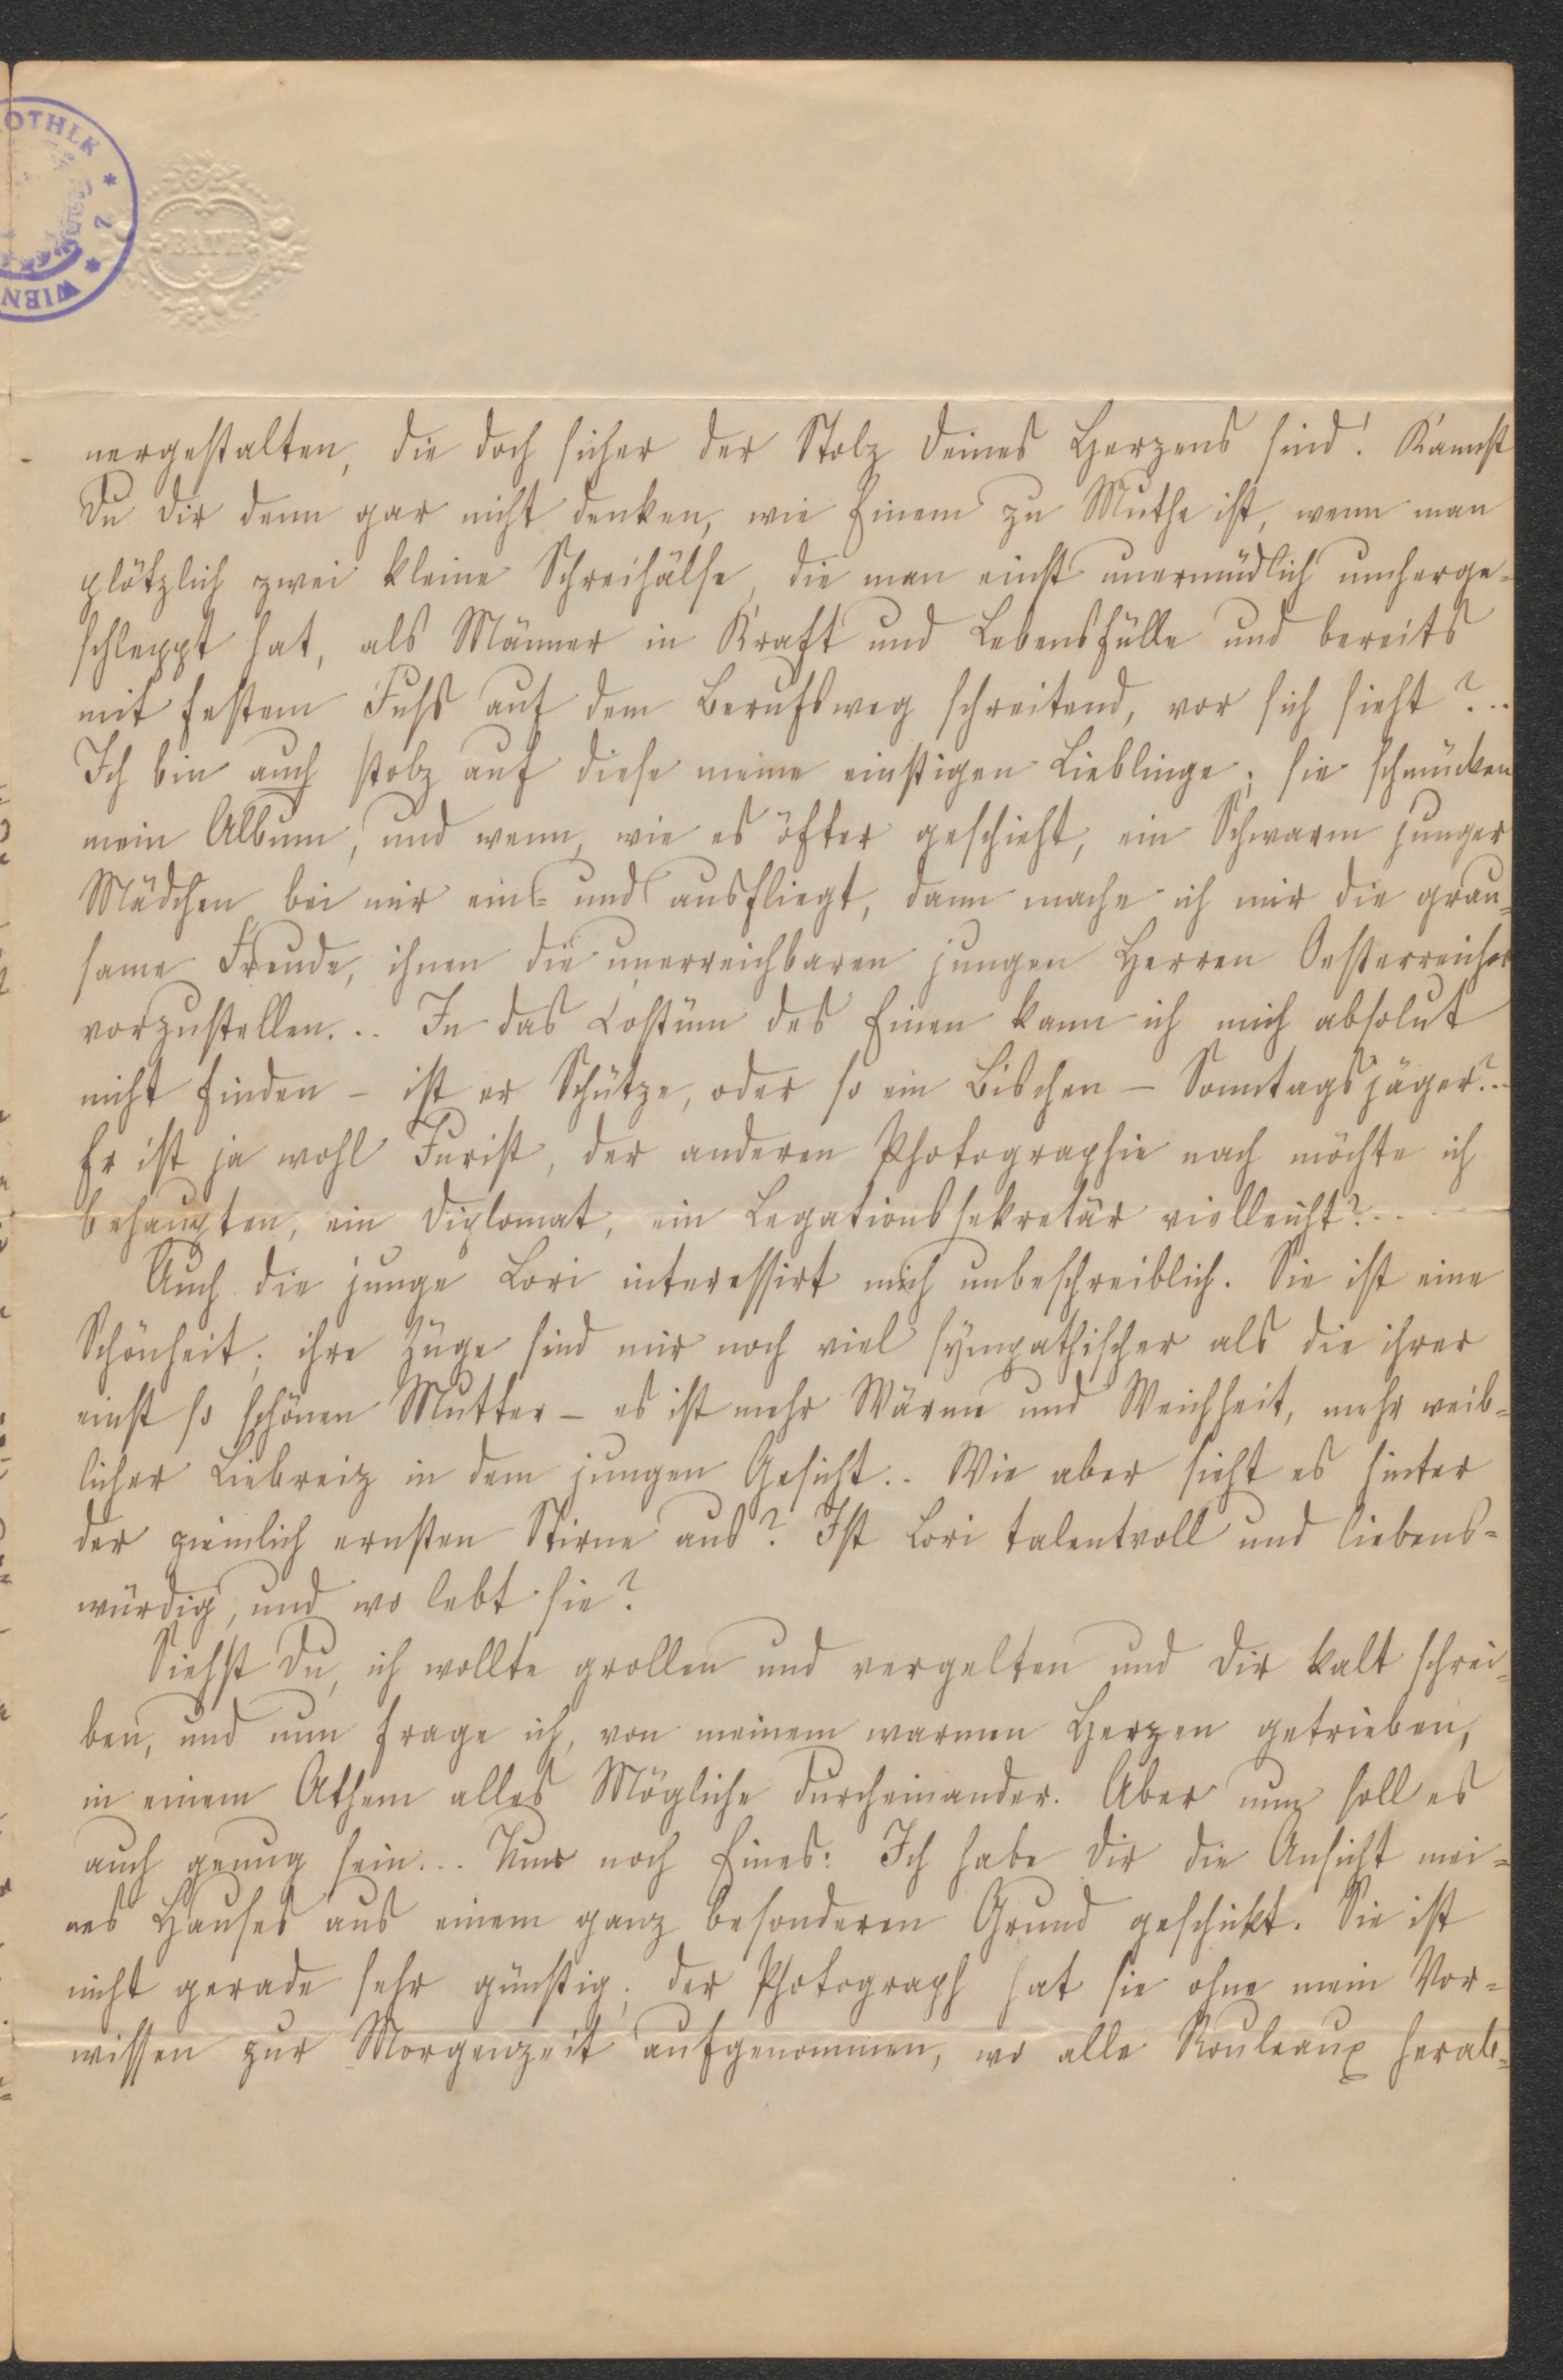 OTHEK * WIEN *
BATH
nergestalten, die doch sicher der Stolz Deines Herzens sind! Kannst
Du Dir denn gar nicht denken, wie Einem zu Muthe ist, wenn man
plötzlich zwei kleine Schreihälse, die man einst unermüdlich umherge-
schleppt hat, als Männer in Kraft und Lebensfülle und bereits
mit festem Fuß auf dem Berufsweg schreitend, vor sich sieht?..
Ich bin auch stolz auf diese meine einstigen Lieblinge; sie schmücken
mein Album, und wenn, wie es öfter geschieht, ein Schwarm junger
Mädchen bei mir ein- und ausfliegt, dann mache ich mir die grau-
same Freude, ihnen die unerreichbaren jungen Herren Oesterreicher
vorzustellen... In das Costüm des Einen kann ich mich absolut
nicht finden – ist er Schütze, oder so ein Bischen – Sonntagsjäger?..
Er ist ja wohl Jurist, der anderen Photographie nach möchte ich
behaupten, ein Diplomat, ein Legationssekretär vielleicht?...
Auch die junge Lori interessirt mich unbeschreiblich. Sie ist eine
Schönheit; ihre Züge sind mir noch viel sympathischer als die ihrer
einst so schönen Mutter – es ist mehr Wärme und Weichheit, mehr weib-
licher Liebreiz in dem jungen Gesicht.. Wie aber sieht es hinter
der ziemlich ernsten Stirne aus? Ist Lori talentvoll und liebens-
würdig, und wo lebt sie?
Siehst Du, ich wollte grollen und vergelten und Dir kalt schrei-
ben, und nun frage ich, von meinem warmen Herzen getrieben,
in einem Athem alles Mögliche durcheinander. Aber nun soll es
auch genug sein... Nur noch Eines: Ich habe Dir die Ansicht mei-
nes Hauses aus einem ganz besonderen Grund geschickt. Sie ist
nicht gerade sehr günstig; der Photograph hat sie ohne mein Vor-
wissen zur Morgenzeit aufgenommen, wo alle Rouleaux herab-